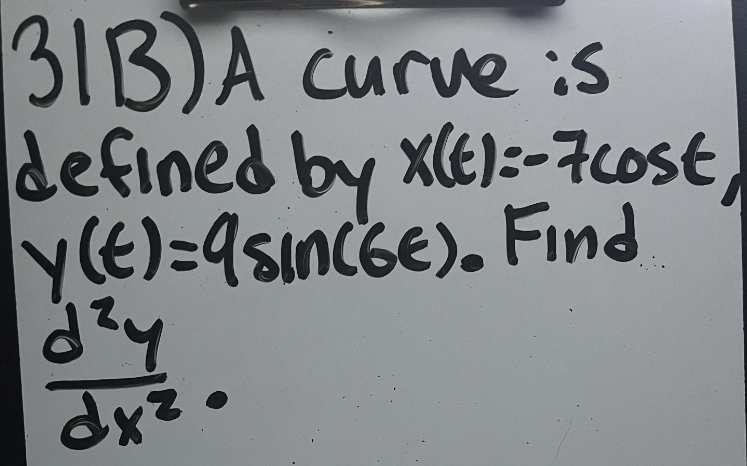 31B) A curve is
defined by x(t)=-7cost,
y(t)=9sin(6t). Find
d²y
dx².